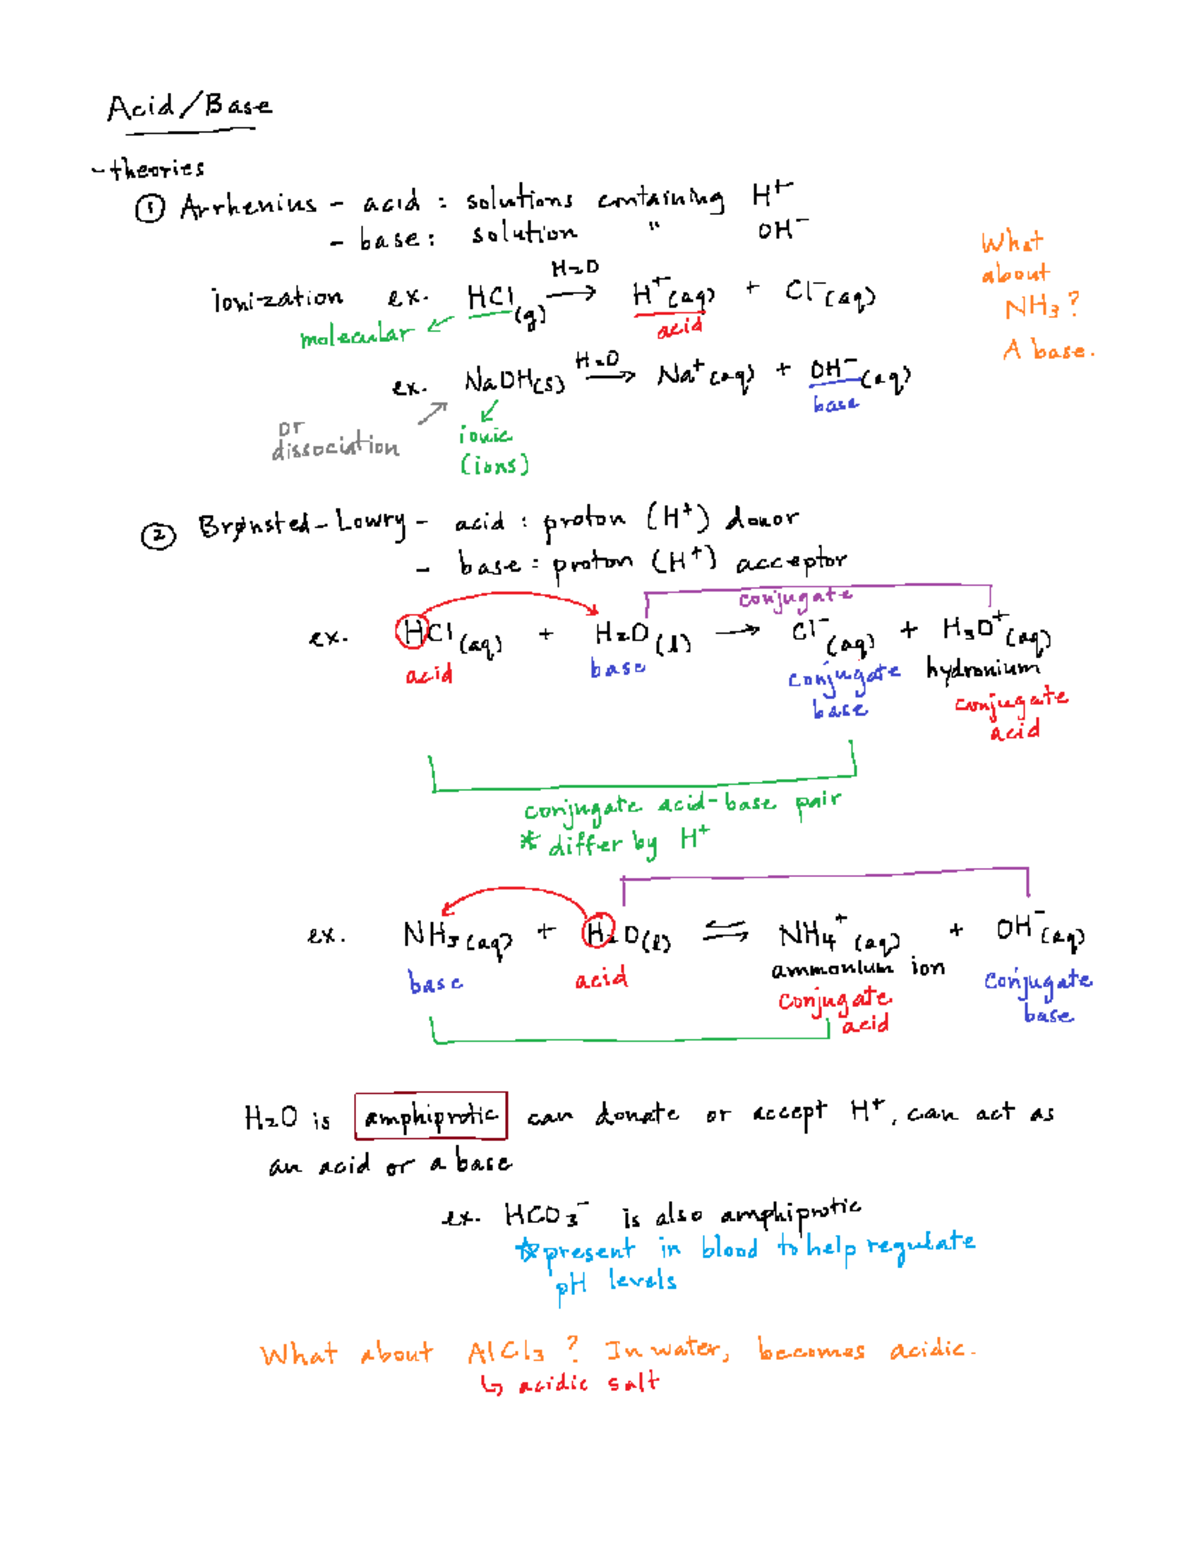 Acid/Base
-theories
① Arrhenius - acid : solutions containing H⁺
- base : solution " OH⁻
What about NH₃? A base.
ionization ex. HCl(g) —H₂O→ H⁺(aq) + Cl⁻(aq)
molecular acid
ex. NaOH(s) —H₂O→ Na⁺(aq) + OH⁻(aq)
base
or dissociation
ionic
(ions)
② Brønsted-Lowry - acid : proton (H⁺) donor
- base : proton (H⁺) acceptor
conjugate
ex. HCl(aq) + H₂O(l) → Cl⁻(aq) + H₃O⁺(aq)
acid base conjugate base hydronium
conjugate acid
conjugate acid-base pair
* differ by H⁺
ex. NH₃(aq) + H₂O(l) ⇌ NH₄⁺(aq) + OH⁻(aq)
base acid ammonium ion conjugate base
conjugate acid
H₂O is amphiprotic can donate or accept H⁺, can act as
an acid or a base
ex. HCO₃⁻ is also amphiprotic
☆ present in blood to help regulate
pH levels
What about AlCl₃? In water, becomes acidic.
↳ acidic salt